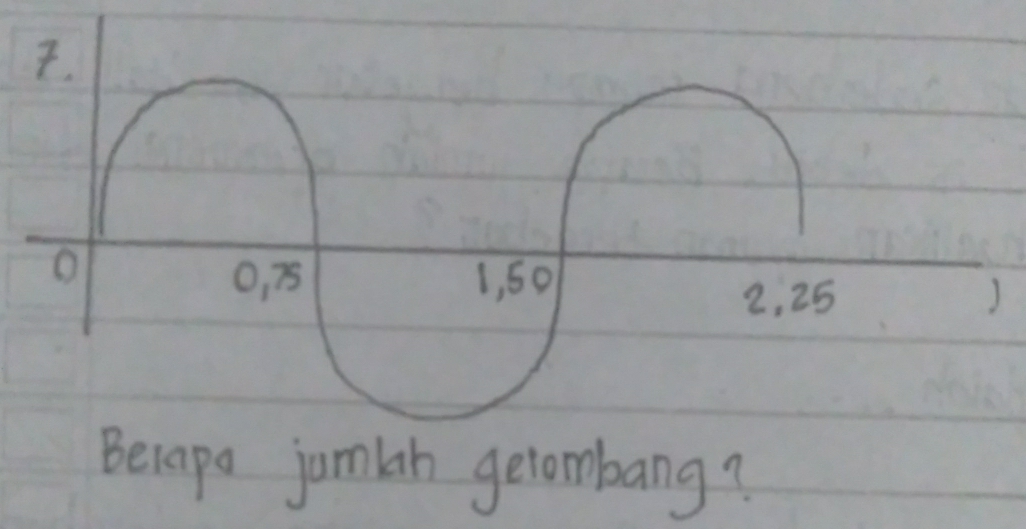 7.
0 0,75 1,50 2,25
Berapa jumlah gelombang?